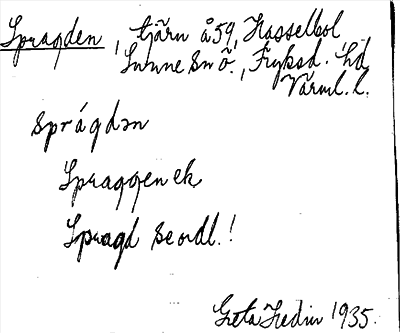 Spragden, tjärn å 59, Hasselbol
Sunne sn Ö., Fryksd. hd,
Värml. l.
sprágdən
Spraggen ek
Spragd se ordl.!
Greta Hedin 1935.